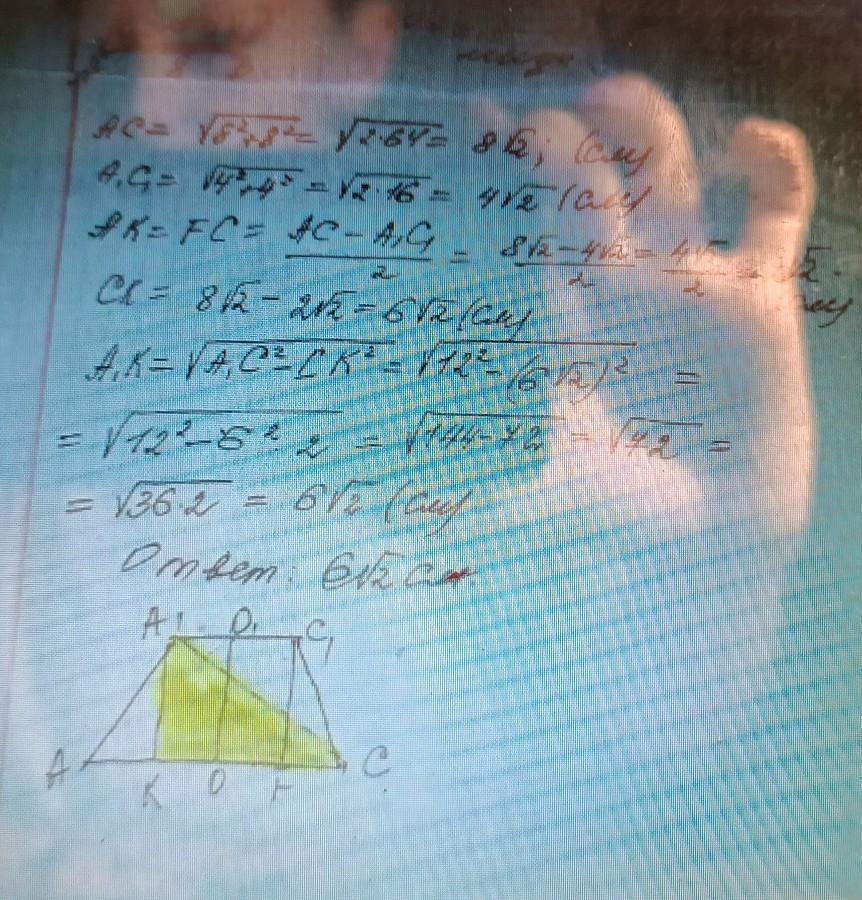 AC = √8²+8² = √2·64 = 8√2; (см)
A₁C₁ = √4²+4² = √2·16 = 4√2 (см)
AK = FC = AC - A₁C₁ / 2 = 8√2 - 4√2 / 2 = 4√2 / 2 = 2√2 (см)
CK = 8√2 - 2√2 = 6√2 (см)
A₁K = √A₁C² - CK² = √12² - (6√2)² =
= √12² - 6²·2 = √144-72 = √72 =
= √36·2 = 6√2 (см)
Ответ: 6√2 см
A₁ O₁ C₁
A K O F C